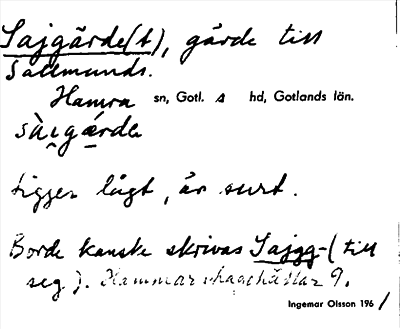 Sajgärde(t), gärde till
Sallmunds.
Hamra sn, Gotl. s hd, Gotlands län.
sàigǽrdɛ
Ligger lågt, är surt.
Borde kanske skrivas Sajgg- (till
seg). 9.
Ingemar Olsson 1961